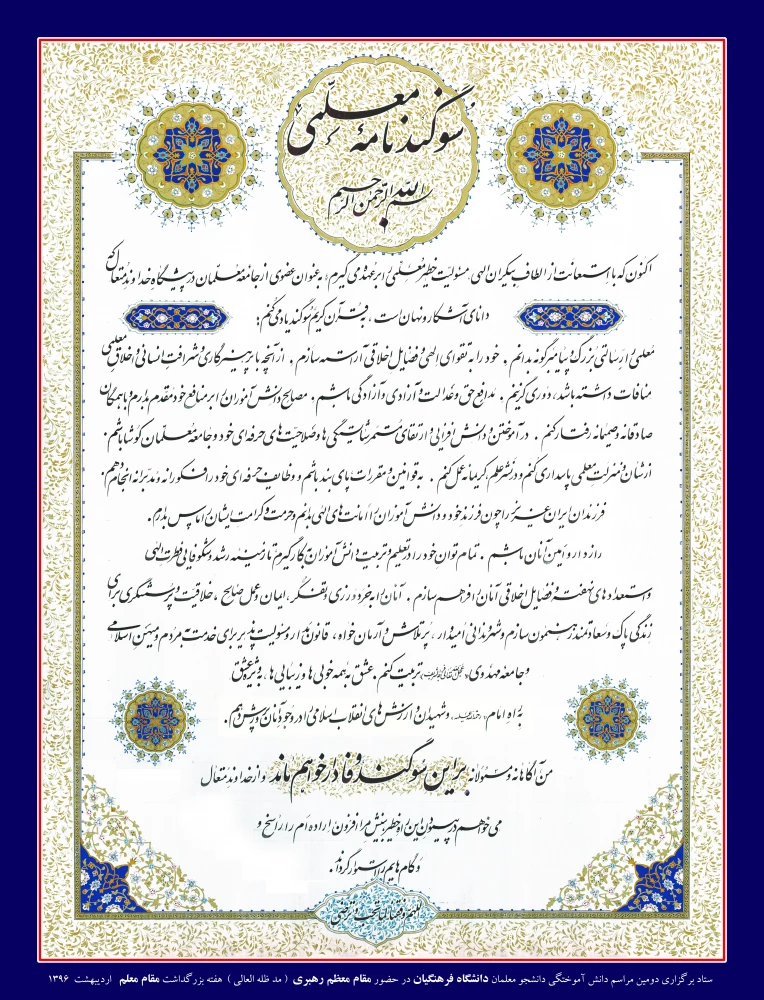 سوگندنامهٔ معلّمی
بسم الله الرحمن الرحیم
اکنون که با استعانت از الطاف بیکران الهی، مسئولیت خطیر معلّمی را بر عهده می گیرم؛ به عنوان عضوی از جامعه معلّمان در پیشگاه خداوند متعال که
دانای آشکار و نهان است، به قرآن کریم سوگند یاد می کنم:
معلمی را رسالتی بزرگ و پیامبرگونه بدانم. خود را به تقوای الهی و فضایل اخلاقی آراسته سازم. از آنچه با پرهیزگاری و شرافت انسانی و اخلاق معلمی
منافات داشته باشد، دوری گزینم. مدافع حق و عدالت و آزادی و آزادگی باشم. مصالح دانش آموزان را بر منافع خود مقدم بدارم و با همگان
صادقانه و صمیمانه رفتار کنم. در آموختن و دانش افزایی و ارتقای مستمر شایستگی ها و صلاحیت های حرفه ای خود و جامعه معلّمان کوشا باشم.
از شأن و منزلت معلمی پاسداری کنم و در نشر علم، کریمانه عمل کنم. به قوانین و مقررات پای بند باشم و وظایف حرفه ای خود را فکورانه و مدبرانه انجام دهم.
فرزندان ایران عزیز را چون فرزند خود و دانش آموزان را امانت های الهی بدانم و حرمت و کرامت ایشان را پاس بدارم.
رازدار و امین آنان باشم. تمام توان خود را در تعلیم و تربیت دانش آموزان به کار گیرم تا زمینه رشد و شکوفایی فطرت الهی
و استعدادهای نهفته و فضایل اخلاقی آنان را فراهم سازم. آنان را به خردورزی و تفکر، ایمان و عمل صالح، خلاقیت و پرسشگری برای
زندگی پاک و سعادتمند رهنمون سازم و شهروندانی امیدوار، پرتلاش و آرمان خواه، قانون مدار و مسئولیت پذیر برای خدمت به مردم و میهن اسلامی
و جامعه مهدوی (عجل الله تعالی فرجه الشریف) تربیت کنم. عشق به همه خوبی ها و زیبایی ها، به ویژه عشق
به راه امام و شهیدان و ارزش های انقلاب اسلامی را در وجود آنان پرورش دهم.
من آگاهانه و مسئولانه بر این سوگند وفادار خواهم ماند و از خداوند متعال
می خواهم در پیمودن این راه خطیر بینش مرا افزون اراده ام را راسخ و
و گام هایم را استوار گرداند.
اللهم وفقنا لما تحب و ترضی
ستاد برگزاری دومین مراسم دانش آموختگی دانشجو معلمان دانشگاه فرهنگیان در حضور مقام معظم رهبری ( مد ظله العالی ) هفته بزرگداشت مقام معلم اردیبهشت ۱۳۹۶